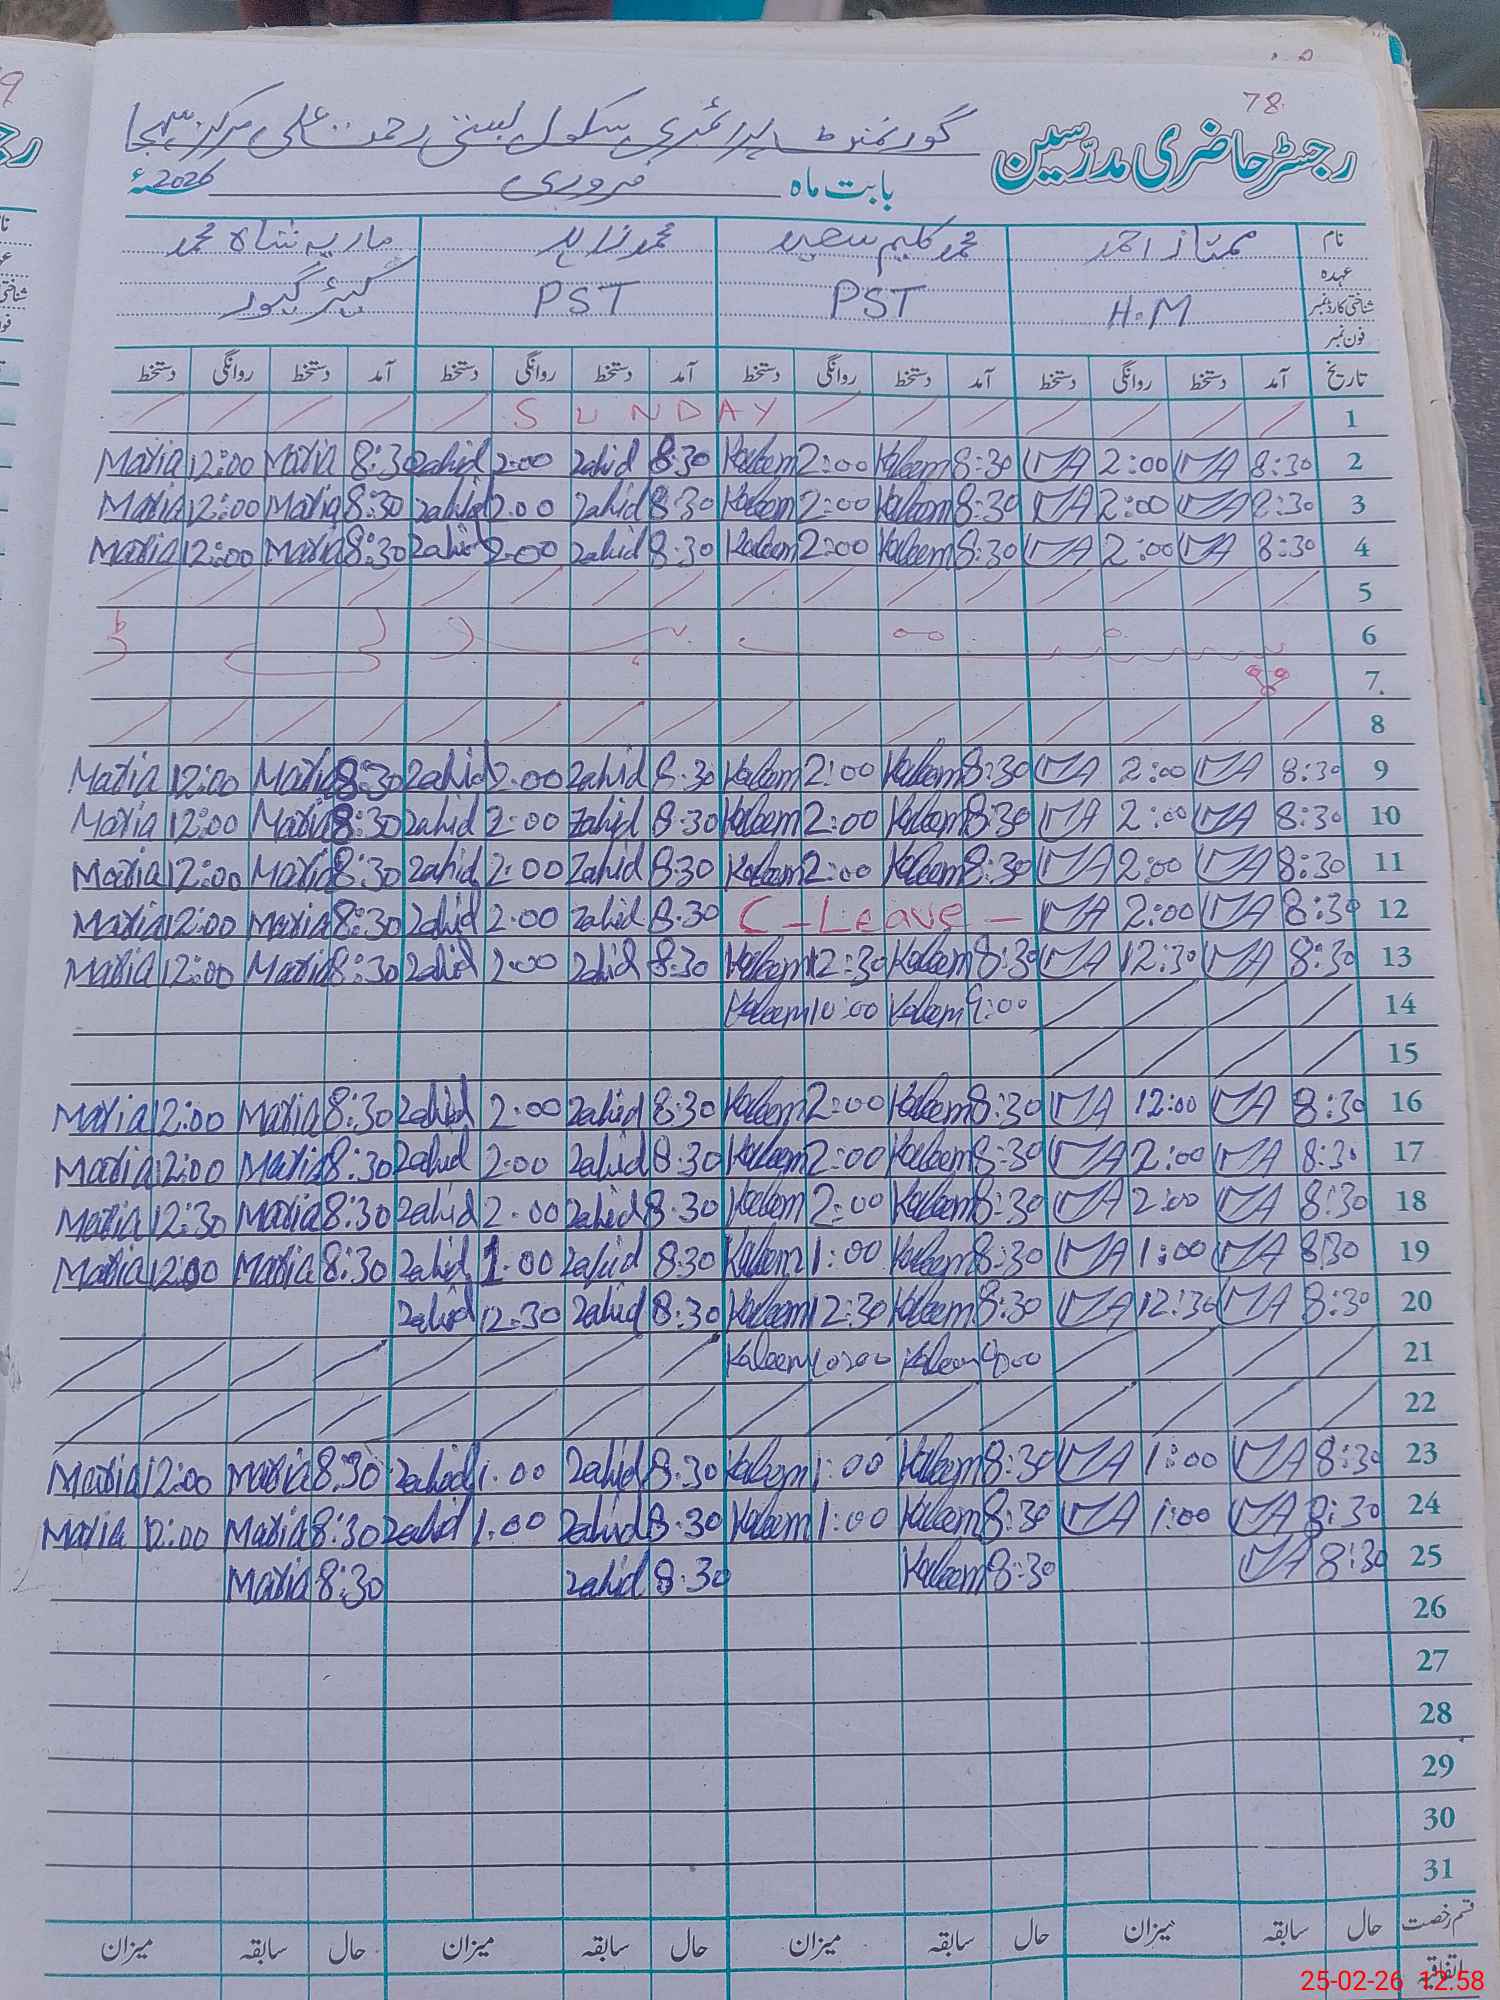 78
رجسٹر حاضری مدرّسین گورنمنٹ پرائمری سکول بستی رحمت علی مرکز
بابت ماہ فروری 2026ء
نام ممتاز احمد محمد کلیم سعید محمد زاہد ماریہ شاہ محمد
عہدہ H.M PST PST کیئر گیور
شناختی کارڈ نمبر
فون نمبر
تاریخ آمد دستخط روانگی دستخط آمد دستخط روانگی دستخط آمد دستخط روانگی دستخط آمد دستخط روانگی دستخط
SUNDAY 1
Maria 12:00 Maria 8:30 Zahid 2:00 Zahid 8:30 Kaleem 2:00 Kaleem 8:30 MA 2:00 MA 8:30 2
Maria 12:00 Maria 8:30 Zahid 2:00 Zahid 8:30 Kaleem 2:00 Kaleem 8:30 MA 2:00 MA 8:30 3
Maria 12:00 Maria 8:30 Zahid 2:00 Zahid 8:30 Kaleem 2:00 Kaleem 8:30 MA 2:00 MA 8:30 4
5
6
7
8
Maria 12:00 Maria 8:30 Zahid 2:00 Zahid 8:30 Kaleem 2:00 Kaleem 8:30 MA 2:00 MA 8:30 9
Maria 12:00 Maria 8:30 Zahid 2:00 Zahid 8:30 Kaleem 2:00 Kaleem 8:30 MA 2:00 MA 8:30 10
Maria 12:00 Maria 8:30 Zahid 2:00 Zahid 8:30 Kaleem 2:00 Kaleem 8:30 MA 2:00 MA 8:30 11
Maria 12:00 Maria 8:30 Zahid 2:00 Zahid 8:30 C-Leave - MA 2:00 MA 8:30 12
Maria 12:00 Maria 8:30 Zahid 2:00 Zahid 8:30 Kaleem 12:30 Kaleem 8:30 MA 12:30 MA 8:30 13
Kaleem 10:00 Kaleem 9:00 14
15
Maria 12:00 Maria 8:30 Zahid 2:00 Zahid 8:30 Kaleem 2:00 Kaleem 8:30 MA 12:00 MA 8:30 16
Maria 12:00 Maria 8:30 Zahid 2:00 Zahid 8:30 Kaleem 2:00 Kaleem 8:30 MA 2:00 MA 8:30 17
Maria 12:30 Maria 8:30 Zahid 2:00 Zahid 8:30 Kaleem 2:00 Kaleem 8:30 MA 2:00 MA 8:30 18
Maria 12:00 Maria 8:30 Zahid 1:00 Zahid 8:30 Kaleem 1:00 Kaleem 8:30 MA 1:00 MA 8:30 19
Zahid 12:30 Zahid 8:30 Kaleem 12:30 Kaleem 8:30 MA 12:30 MA 8:30 20
Kaleem 10:00 Kaleem 9:00 21
22
Maria 12:00 Maria 8:30 Zahid 1:00 Zahid 8:30 Kaleem 1:00 Kaleem 8:30 MA 1:00 MA 8:30 23
Maria 12:00 Maria 8:30 Zahid 1:00 Zahid 8:30 Kaleem 1:00 Kaleem 8:30 MA 1:00 MA 8:30 24
Maria 8:30 Zahid 8:30 Kaleem 8:30 MA 8:30 25
26
27
28
29
30
31
قسم رخصت حال سابقہ میزان حال سابقہ میزان حال سابقہ میزان حال سابقہ میزان
اتفاقیہ
25-02-26 12:58